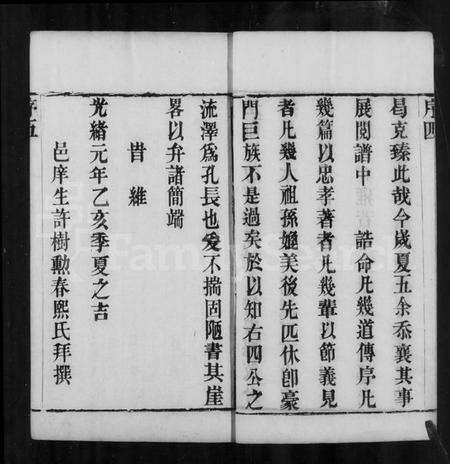 序四
曷克臻此哉今歲夏五余忝襄其事
展閱譜中 誥命凡幾道傳序凡
幾篇以忠孝著者凡幾輩以節義見
者凡幾人祖孫媲美後先匹休卽豪
門巨族不是過矣於以知右四公之
流澤爲孔長也爰不揣固陋書其崖
畧以弁諸簡端
旹維
光緒元年乙亥季夏之吉
邑庠生許樹勳春熙氏拜撰
序五